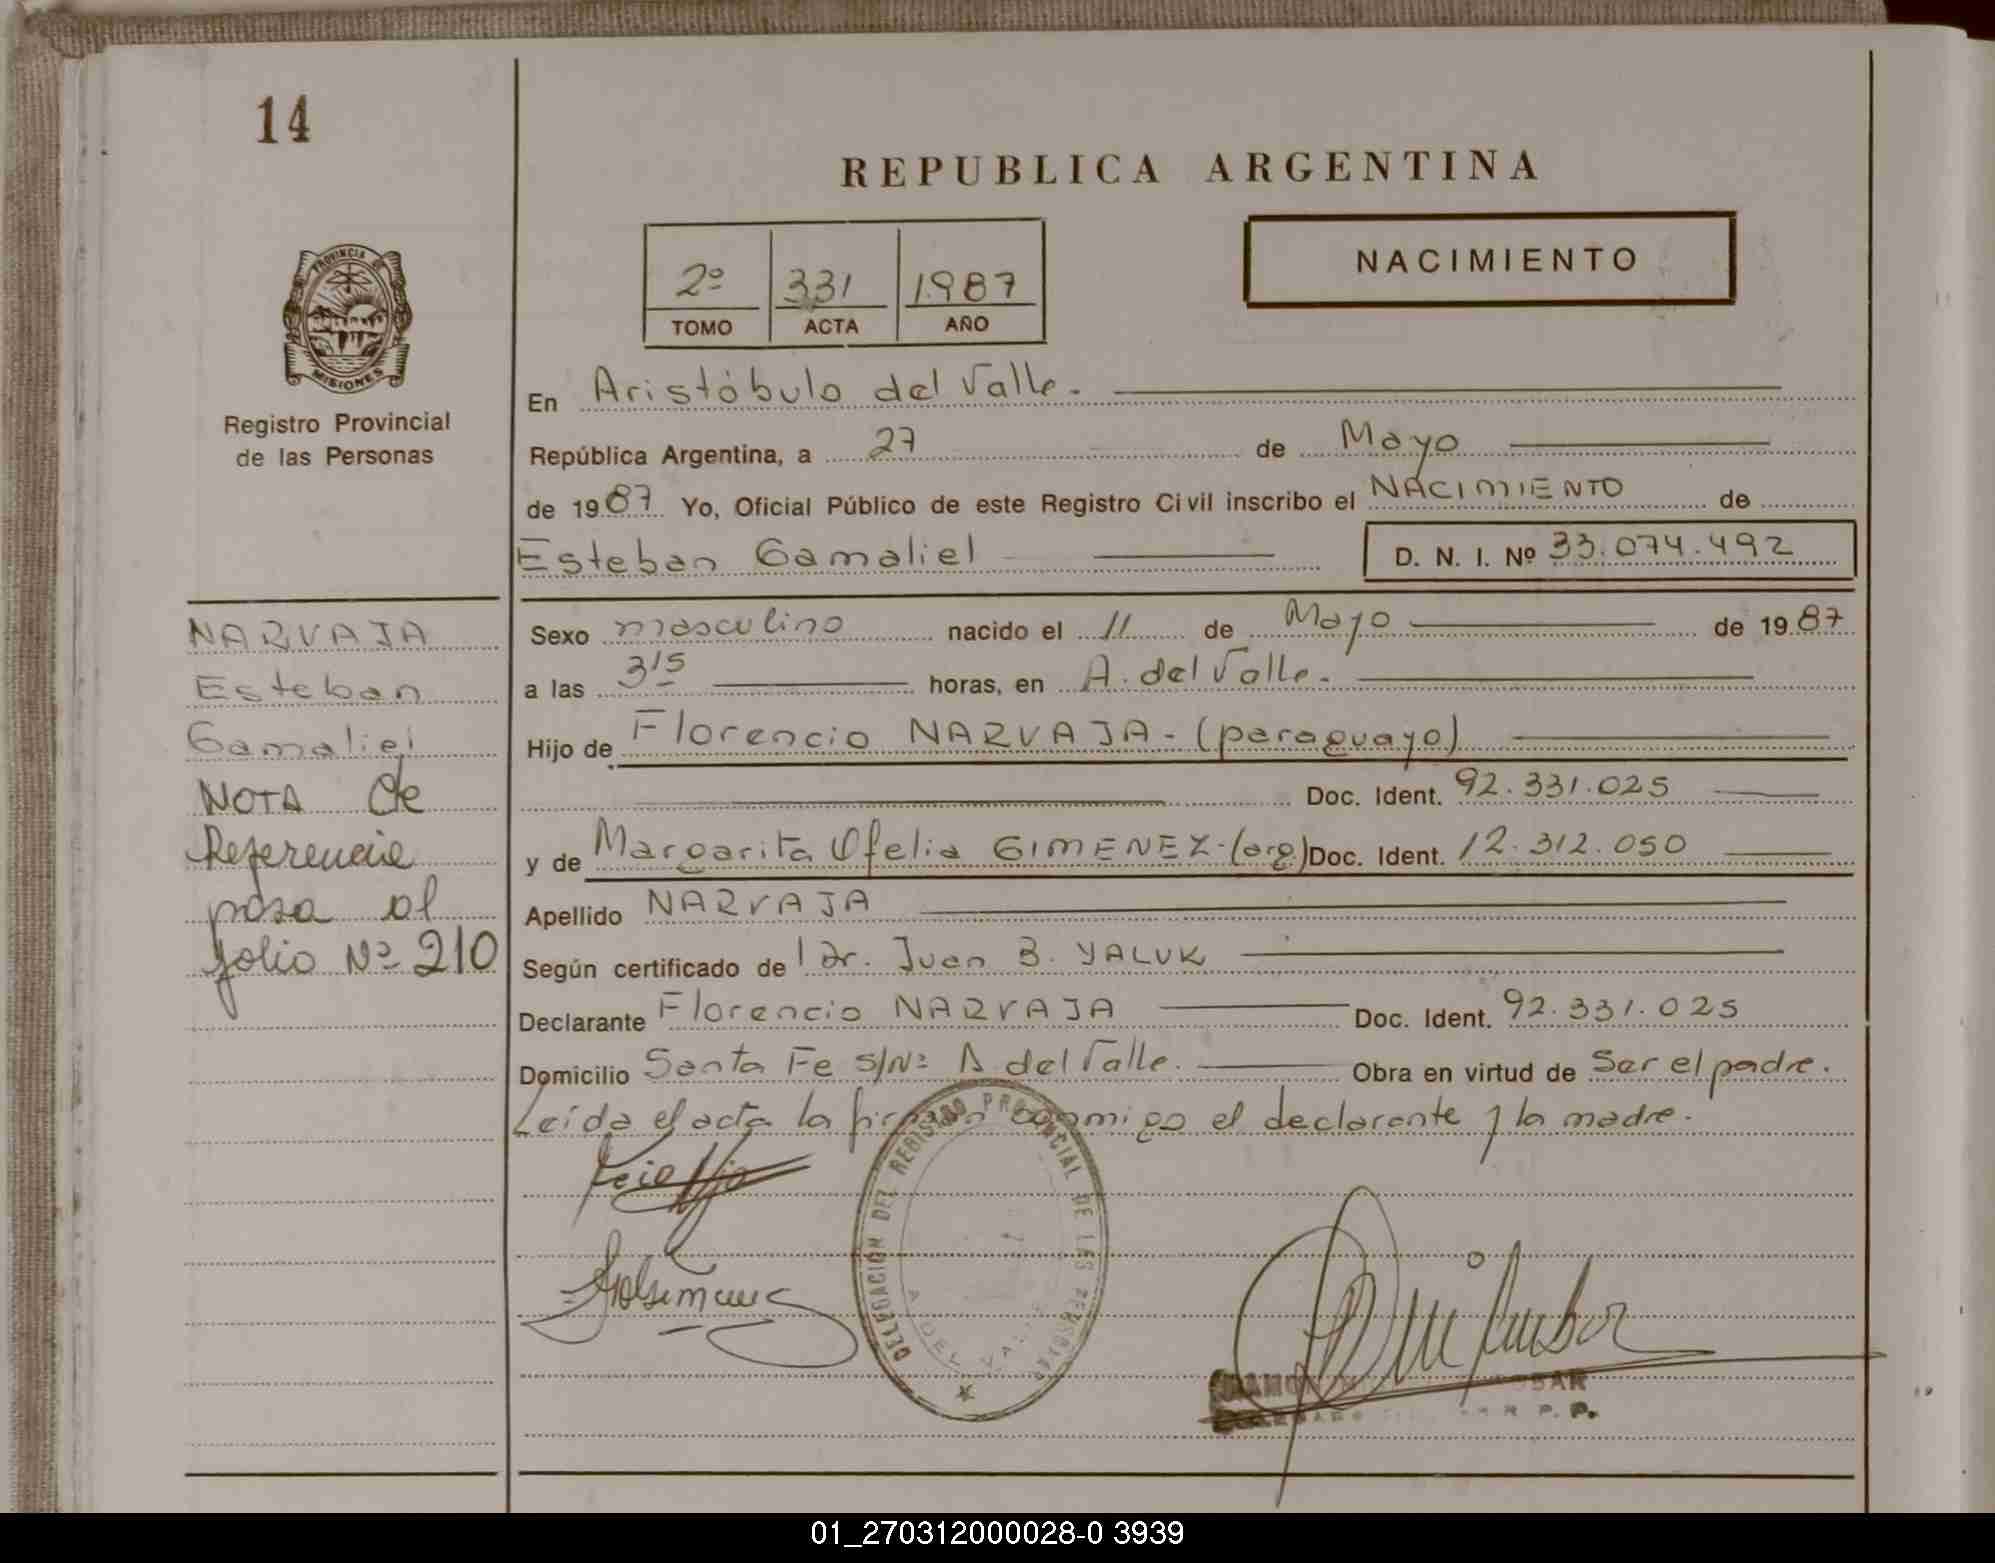 14
REPUBLICA ARGENTINA
2º 331 1987
TOMO ACTA AÑO
NACIMIENTO
PROVINCIA DE
MISIONES
Registro Provincial
de las Personas
En Aristóbulo del Valle.
República Argentina, a 27 de Mayo
de 1987 Yo, Oficial Público de este Registro Civil inscribo el NACIMIENTO de
Esteban Gamaliel D. N. I. Nº 33.074.492
Sexo masculino nacido el 11 de Mayo de 1987
a las 3'15 horas, en A. del Valle.
Hijo de Florencio NARVAJA - (paraguayo)
Doc. Ident. 92.331.025
y de Margarita Ofelia GIMENEZ - (arg) Doc. Ident. 12.312.050
Apellido NARVAJA
Según certificado de l Dr. Juan B. YALUK
Declarante Florencio NARVAJA Doc. Ident. 92.331.025
Domicilio Santa Fe S/Nº A del Valle. Obra en virtud de Ser el padre.
Leída el acta la firman conmigo el declarante y la madre.
NARVAJA
Esteban
Gamaliel
NOTA de
Referencia
pasa al
folio Nº 210
DELEGACION DEL REGISTRO PROVINCIAL DE LAS PERSONAS
A. DEL VALLE
R. P. P.
01_270312000028-0 3939